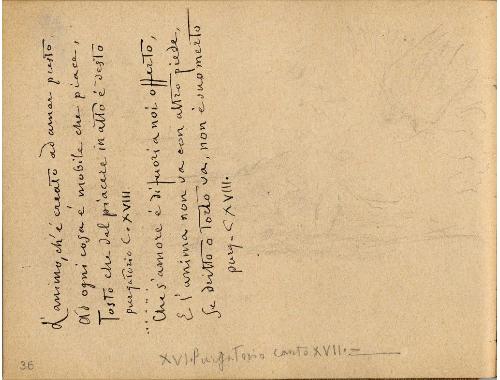 L'animo, ch'è creato ad amar presto,
Ad ogni cosa è mobile che piace,
Tosto che dal piacere in atto è desto
purgatorio C. XVIII
......
Che s'amore è di fuori a noi offerto,
E l'anima non va con altro piede,
Se dritto o torto va, non è suo merto
purg. C XVIII.
XVI. Purgatorio canto XVII.
36